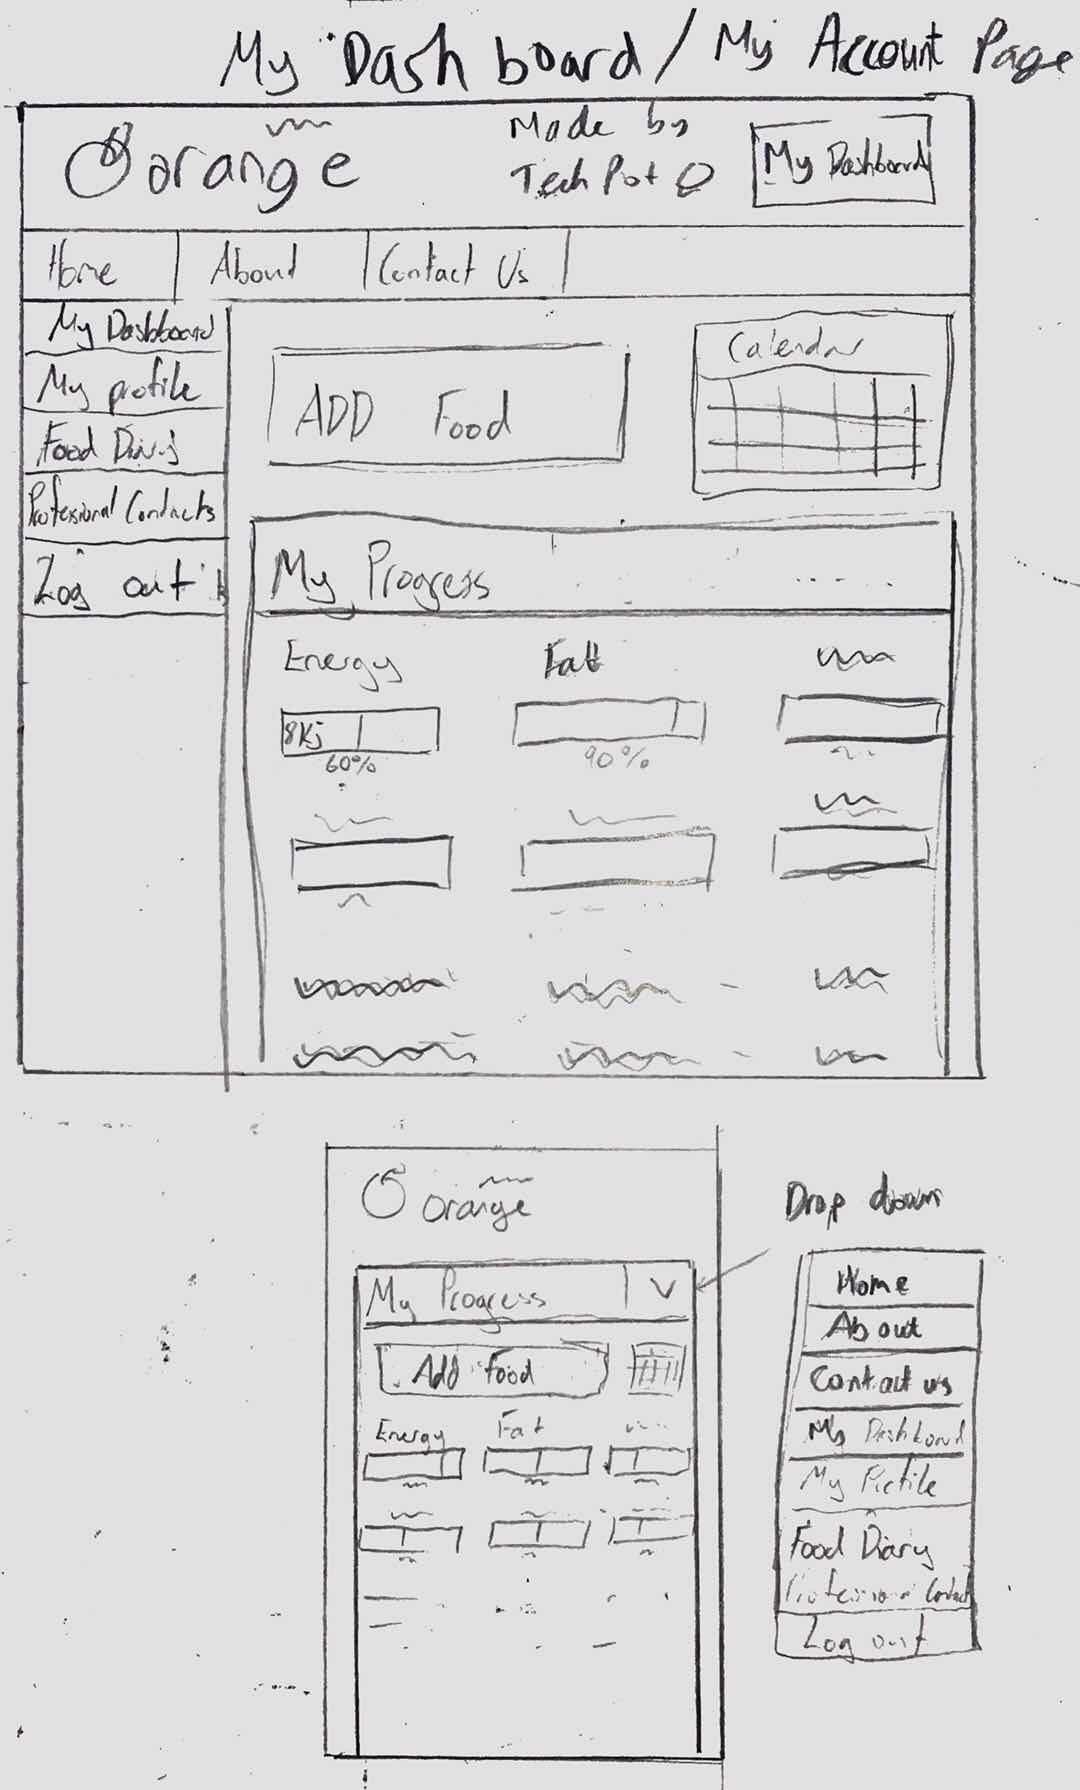 My Dashboard / My Account Page
orange
Made by
Tech Pot
My Dashboard
Home
About
Contact Us
My Dashboard
My profile
Food Diary
Professional Contacts
Log out
ADD Food
Calendar
My Progress
Energy
Fat
8Kj
60%
90%
orange
My Progress
V
Add Food
Energy
Fat
Drop down
Home
About
Contact us
My Dashboard
My Profile
Food Diary
Professional Contact
Log out